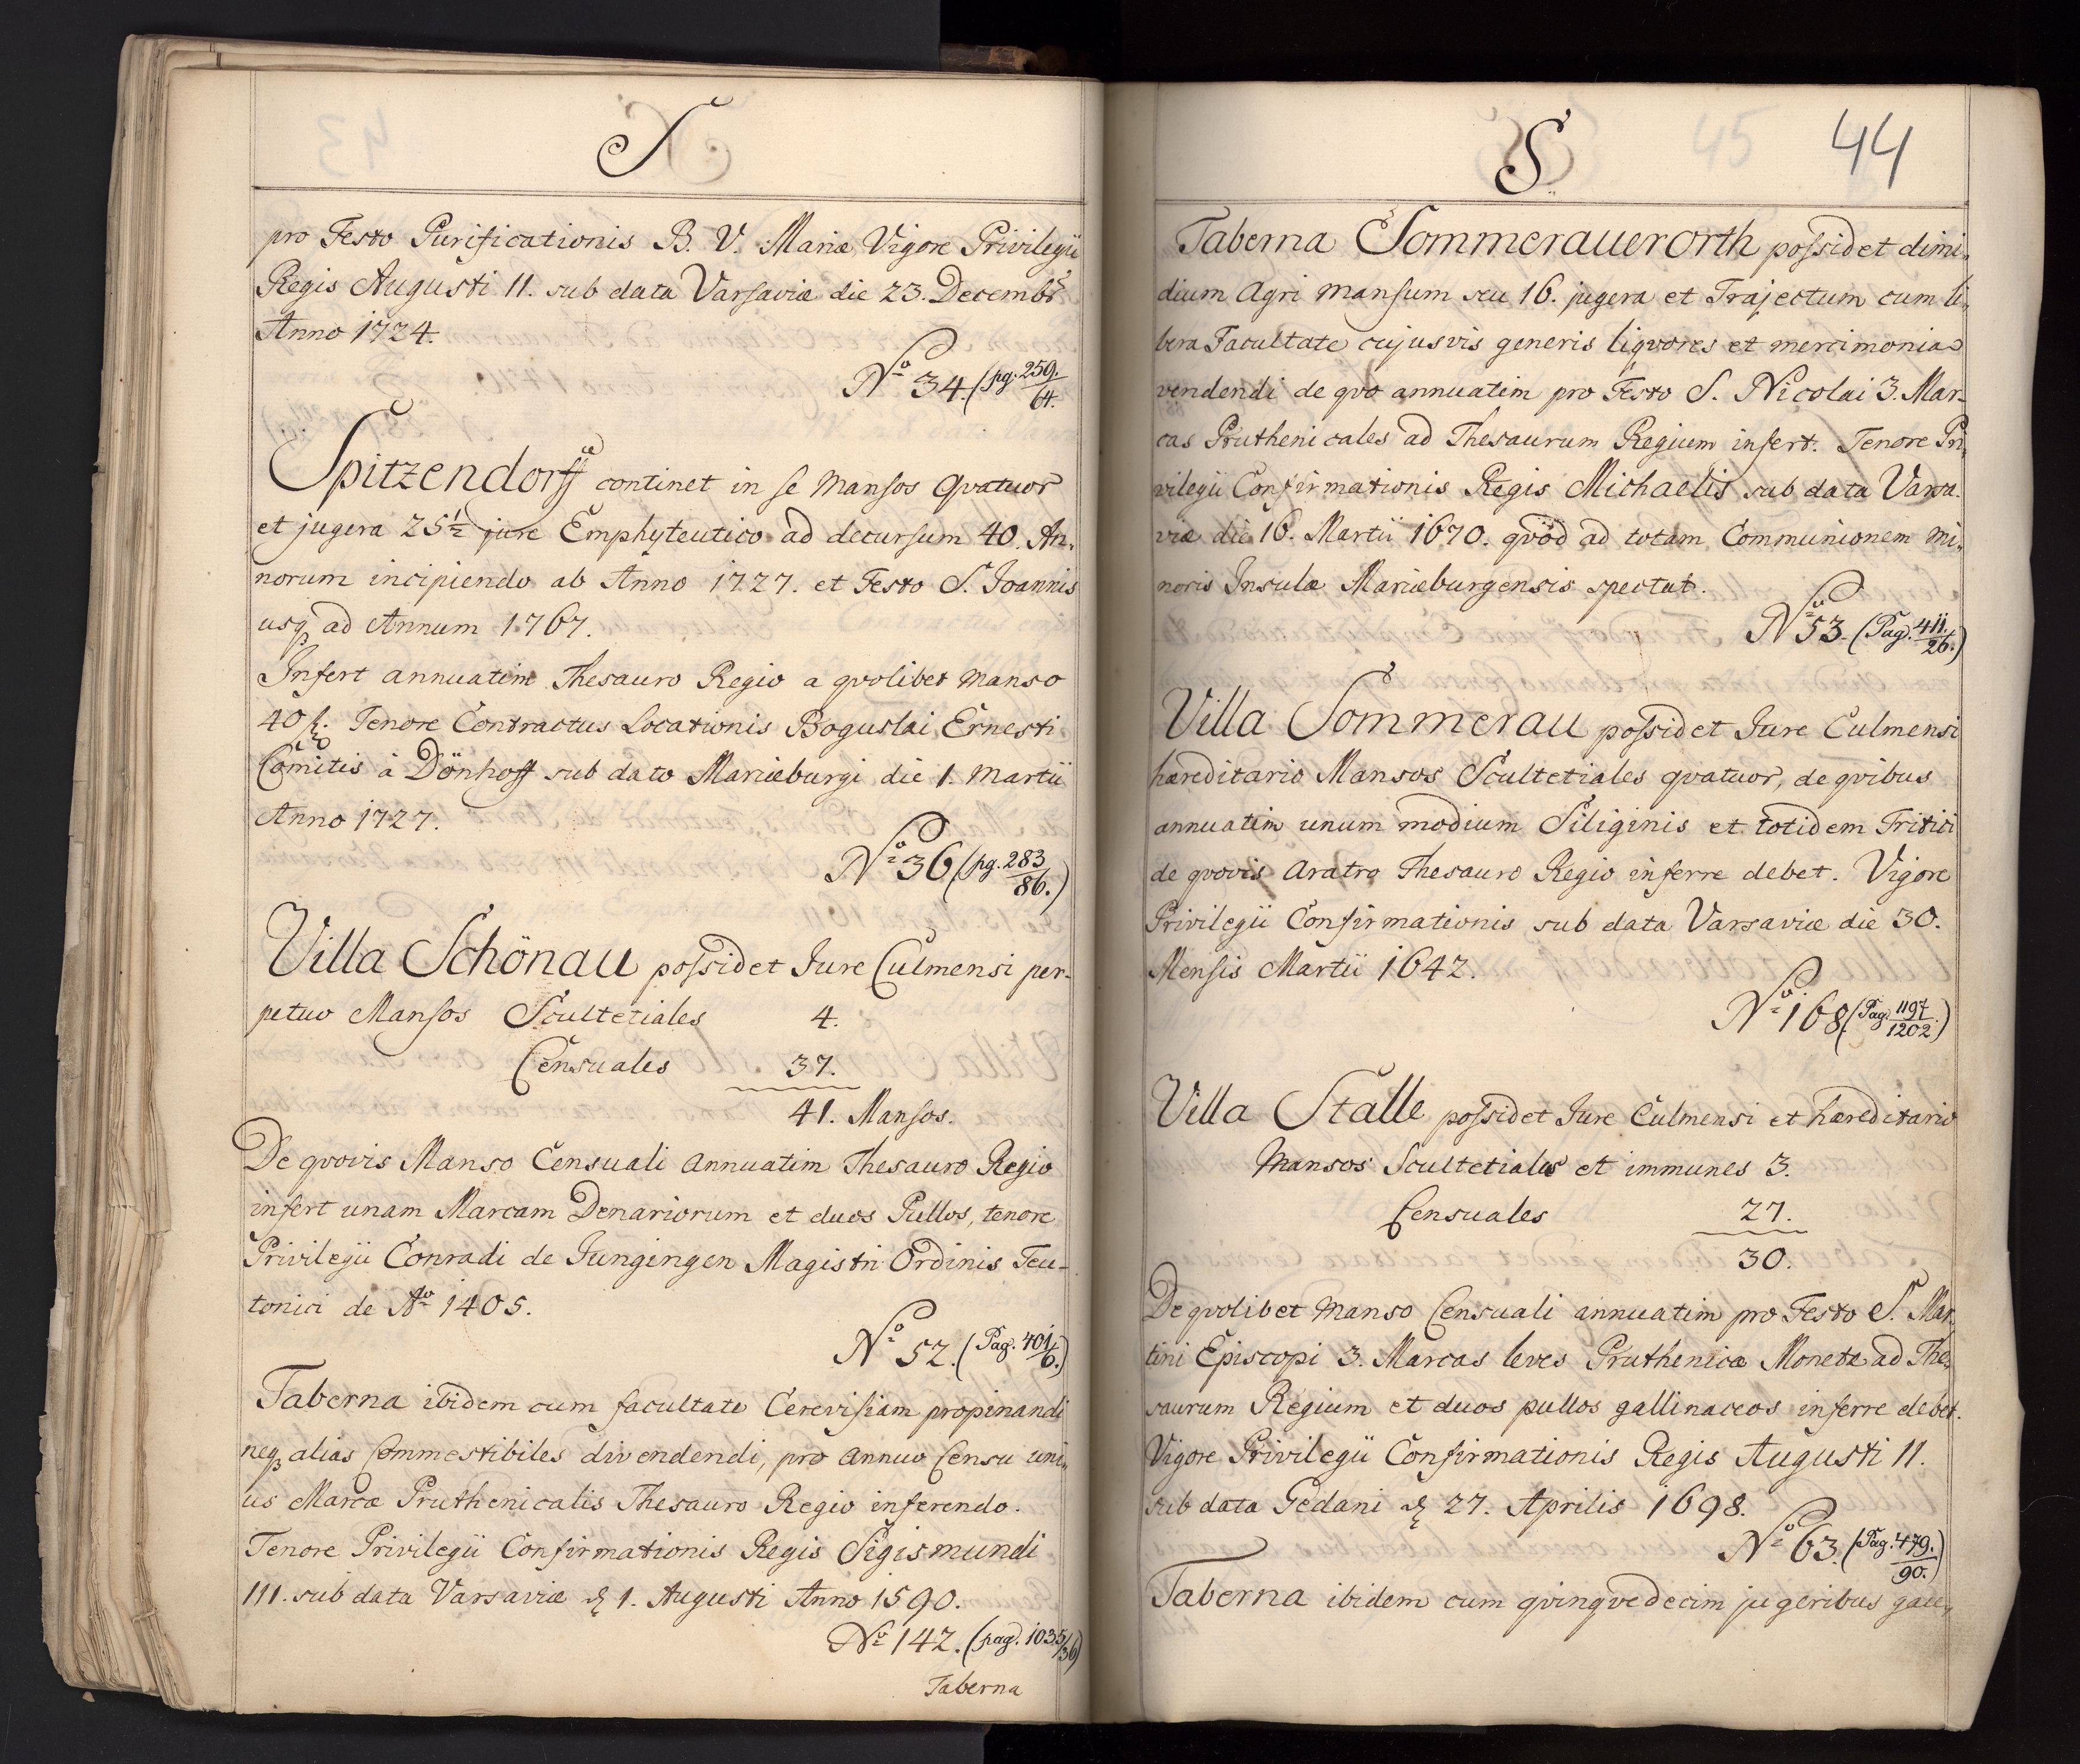 S
pro Festo Purificationis B. V. Mariæ, Vigore Privilegii
Regis Augusti II. sub data Varsaviæ die 23. Decembr
Anno 1724.
No 34. (pg. 259./64.
Spitzendorff continet in se Mansos Qvatuor
et jugera 25½ jure Emphyteutico ad decursum 40. An„
norum incipiendo ab Anno 1727. et Festo S. Joannis
usq ad Annum 1767.
Infert annuatim Thesauro Regio a qvolibet Manso
40 f. Tenore Contractus Locationis Boguslai Ernesti
Comitis à Dönhoff sub dato Mariæburgi die 1. Martii
Anno 1727.
No 36 (pg. 283/86.)
Villa Schönau possidet Jure Culmensi per-
petuo Mansos Scultetiales 4.
Censuales 37.
41. Mansos.
De qvovis Manso Censuali annuatim Thesauro Regio
infert unam Marcam Denariorum et duos Pullos, tenore
Privilegii Conradi de Jungingen Magistri Ordinis Teu-
tonici de Ao 1405.
No 52. (Pag. 401/6.)
Taberna ibidem cum facultate Cerevisiam propinandi
neq alias Commestibiles divendendi, pro annuo Censu uni„
us Marcæ Pruthenicalis Thesauro Regio inferendo.
Tenore Privilegii Confirmationis Regis Sigismundi
III. sub data Varsaviæ d 1. Augusti Anno 1590.
No 142. (pag. 1035/36)
Taberna
S
45 44
Taberna Sommerauerorth possidet dimi„
dium Agri Mansum seu 16. jugera et Trajectum cum li„
bera Facultate cujusvis generis liqvores et mercimonia
vendendi de qvo annuatim pro Festo S. Nicolai 3. Mar-
cas Pruthenicales ad Thesaurum Regium infert. Tenore Pri„
vilegii Confirmationis Regis Michaelis sub data Varsa-
viæ die 16. Martii 1670. qvod ad totam Communionem Mi„
noris Insulæ Mariæburgensis spectat.
No 53. (Pag. 411./26.)
Villa Sommerau possidet Jure Culmensi
hæreditario Mansos Scultetiales qvatuor, de qvibus
annuatim unum modium Siliginis et totidem Tritici
de qvovis Aratro Thesauro Regio inferre debet. Vigore
Privilegii Confirmationis sub data Varsaviæ die 30.
Mensis Martii 1642.
No 168. (Pag. 1197/1202.)
Villa Stalle possidet Jure Culmensi et hæreditario
Mansos Scultetiales et immunes 3.
Censuales 27.
30.
De qvolibet Manso Censuali annuatim pro Festo S. Mar„
tini Episcopi 3. Marcas leves Pruthenicæ Monetæ ad The„
saurum Regium et duos pullos gallinaceos inferre debet.
Vigore Privilegii Confirmationis Regis Augusti II.
sub data Gedani d 27. Aprilis 1698.
No 63. (Pag. 479./90.)
Taberna ibidem cum qvinqvedecim jugeribus gau„